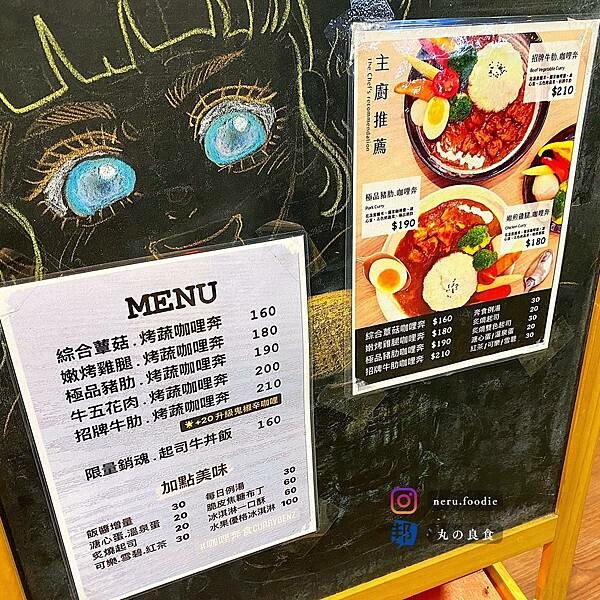 MENU
綜合蕈菇.烤蔬咖哩奔 160
嫩烤雞腿.烤蔬咖哩奔 180
極品豬肋.烤蔬咖哩奔 190
牛五花肉.烤蔬咖哩奔 200
招牌牛肋.烤蔬咖哩奔 210
+20升級鬼椒辛咖哩
限量銷魂.起司牛丼飯 160
加點美味
飯醬增量 30
溏心蛋.溫泉蛋 20
炙燒起司 20
可樂.雪碧.紅茶 30
每日例湯 30
脆皮焦糖布丁 60
冰淇淋一口酥 60
水果優格冰淇淋 100
咖哩奔食CURRYBENZ
主廚推薦
The Chef's recommendation
招牌牛肋.咖哩奔
Beef Vegetable Curry
$210
極品豬肋.咖哩奔
Pork Curry
$190
嫩煎雞腿.咖哩奔
Chicken Curry
$180
綜合蕈菇咖哩奔 $160
嫩烤雞腿咖哩奔 $180
極品豬肋咖哩奔 $190
招牌牛肋咖哩奔 $210
奔食例湯 30
炙燒起司 20
炙燒雙色起司 30
溏心蛋/溫泉蛋 20
紅茶/可樂/雪碧 30
neru.foodie
邦 丸の良食